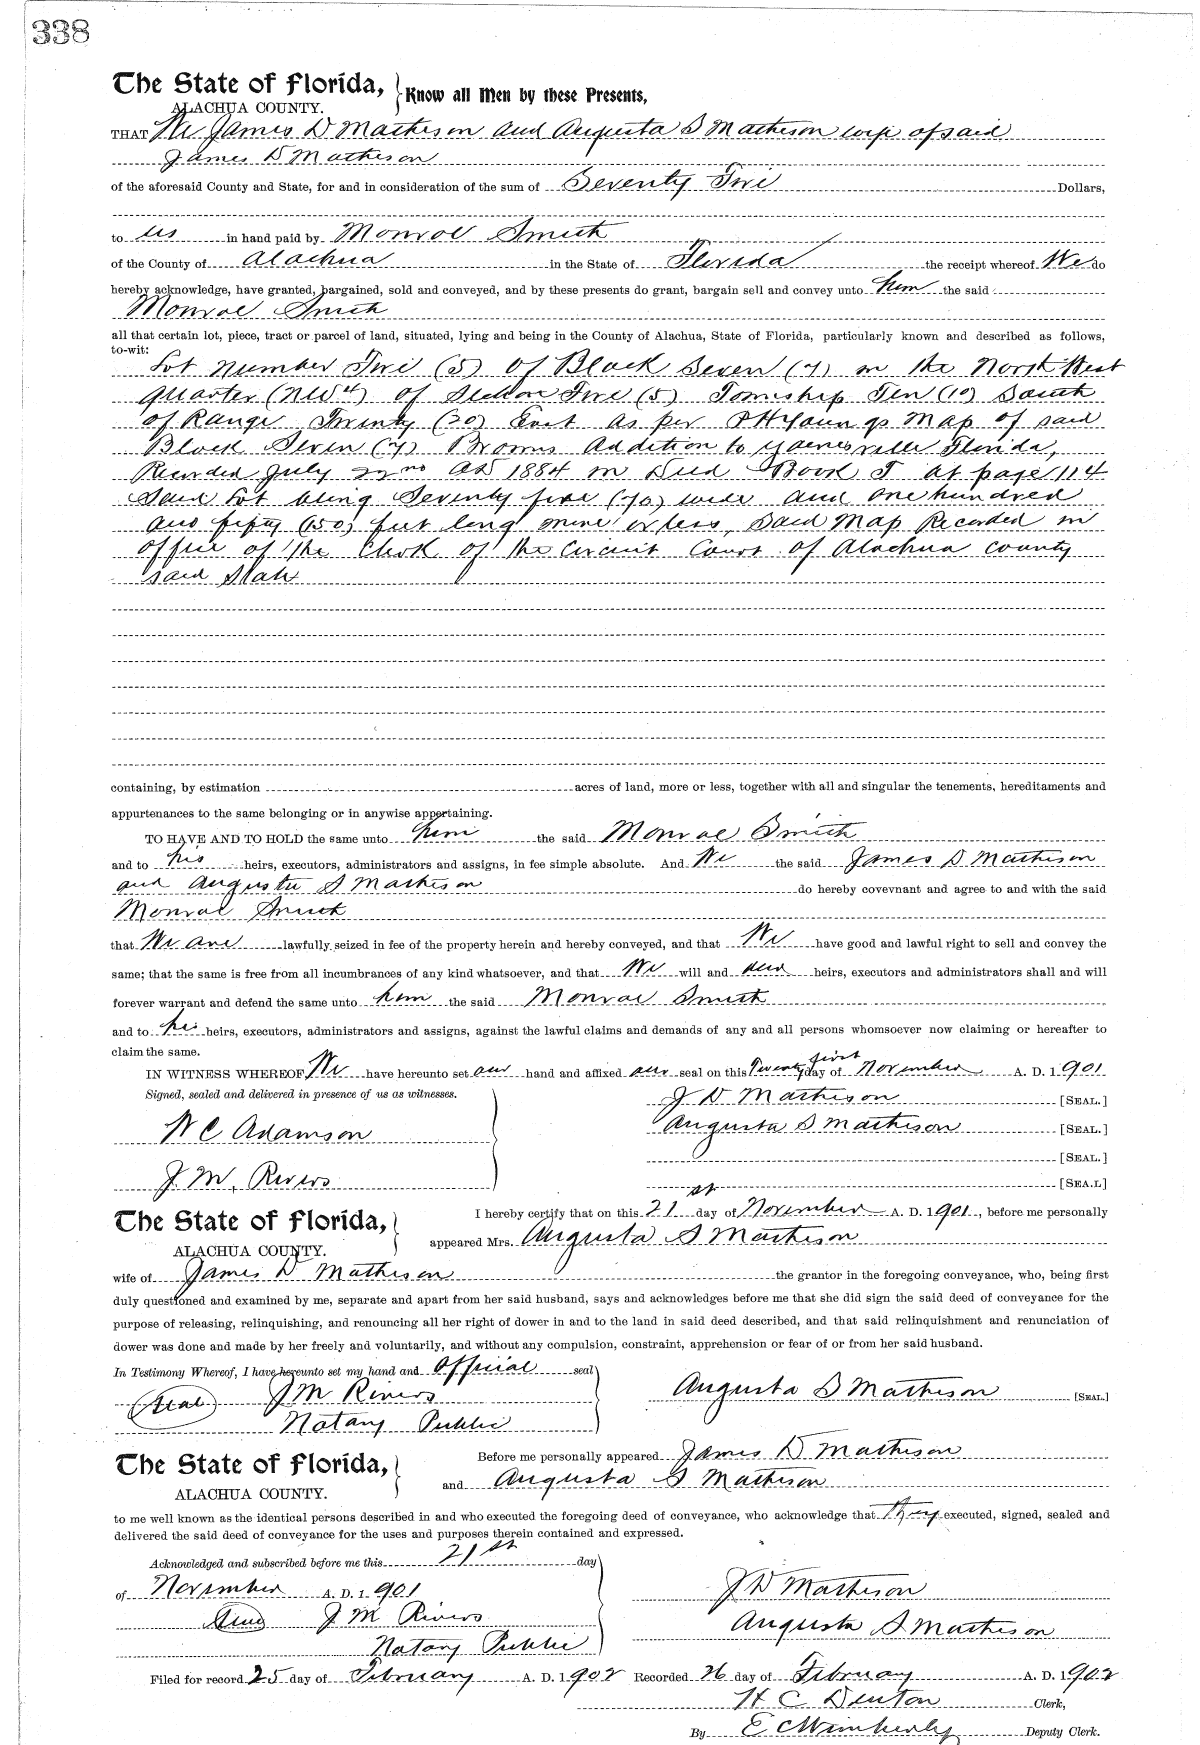 338
The State of Florida, Know all Men by these Presents,
ALACHUA COUNTY.
THAT We James D Matheson and Augusta S Matheson wife of said
James D Matheson
of the aforesaid County and State, for and in consideration of the sum of Seventy Five Dollars,
to us in hand paid by Monroe Smith
of the County of Alachua in the State of Florida the receipt whereof We do
hereby acknowledge, have granted, bargained, sold and conveyed, and by these presents do grant, bargain sell and convey unto him the said
Monroe Smith
all that certain lot, piece, tract or parcel of land, situated, lying and being in the County of Alachua, State of Florida, particularly known and described as follows,
to-wit:
Lot number Five (5) of Block Seven (7) in the North West
quarter (NW4) of Section Five (5) Township Ten (10) South
of Range Twenty (20) East as per Youngs Map of said
Block Seven (7) Browns Addition to Gainesville Florida,
Recorded July 22nd AD 1884 in Deed Book T at page 114
Said Lot being Seventy five (70) wide and one hundred
and fifty (150) feet long more or less, said Map Recorded in
office of the Clerk of the Circuit Court of Alachua County
said State
containing, by estimation acres of land, more or less, together with all and singular the tenements, hereditaments and
appurtenances to the same belonging or in anywise appertaining.
TO HAVE AND TO HOLD the same unto him the said Monroe Smith
and to his heirs, executors, administrators and assigns, in fee simple absolute. And We the said James D Matheson
and Augusta S Matheson do hereby covevnant and agree to and with the said
Monroe Smith
that We are lawfully seized in fee of the property herein and hereby conveyed, and that We have good and lawful right to sell and convey the
same; that the same is free from all incumbrances of any kind whatsoever, and that We will and our heirs, executors and administrators shall and will
forever warrant and defend the same unto him the said Monroe Smith
and to his heirs, executors, administrators and assigns, against the lawful claims and demands of any and all persons whomsoever now claiming or hereafter to
claim the same.
IN WITNESS WHEREOF, We have hereunto set our hand and affixed our seal on this Twenty first day of November A. D. 1901
Signed, sealed and delivered in presence of us as witnesses. J D Matheson [SEAL.]
W C Adamson Augusta S Matheson [SEAL.]
[SEAL.]
J. M. Rivers [SEA.L]
The State of Florida, I hereby certify that on this 21st day of November A. D. 1901, before me personally
ALACHUA COUNTY. appeared Mrs. Augusta S Matheson
wife of James D Matheson the grantor in the foregoing conveyance, who, being first
duly questioned and examined by me, separate and apart from her said husband, says and acknowledges before me that she did sign the said deed of conveyance for the
purpose of releasing, relinquishing, and renouncing all her right of dower in and to the land in said deed described, and that said relinquishment and renunciation of
dower was done and made by her freely and voluntarily, and without any compulsion, constraint, apprehension or fear of or from her said husband.
In Testimony Whereof, I have hereunto set my hand and Official seal
(Seal) J M Rivers Augusta S Matheson [SEAL.]
Notary Public
The State of Florida, Before me personally appeared James D Matheson
ALACHUA COUNTY. and Augusta S Matheson
to me well known as the identical persons described in and who executed the foregoing deed of conveyance, who acknowledge that they executed, signed, sealed and
delivered the said deed of conveyance for the uses and purposes therein contained and expressed.
Acknowledged and subscribed before me this 21st day
of November A. D. 1901 J D Matheson
(Seal) J M Rivers Augusta S Matheson
Notary Public
Filed for record 25 day of February A. D. 1902 Recorded 26 day of February A. D. 1902
H C Denton Clerk,
By E C Wimberly Deputy Clerk.